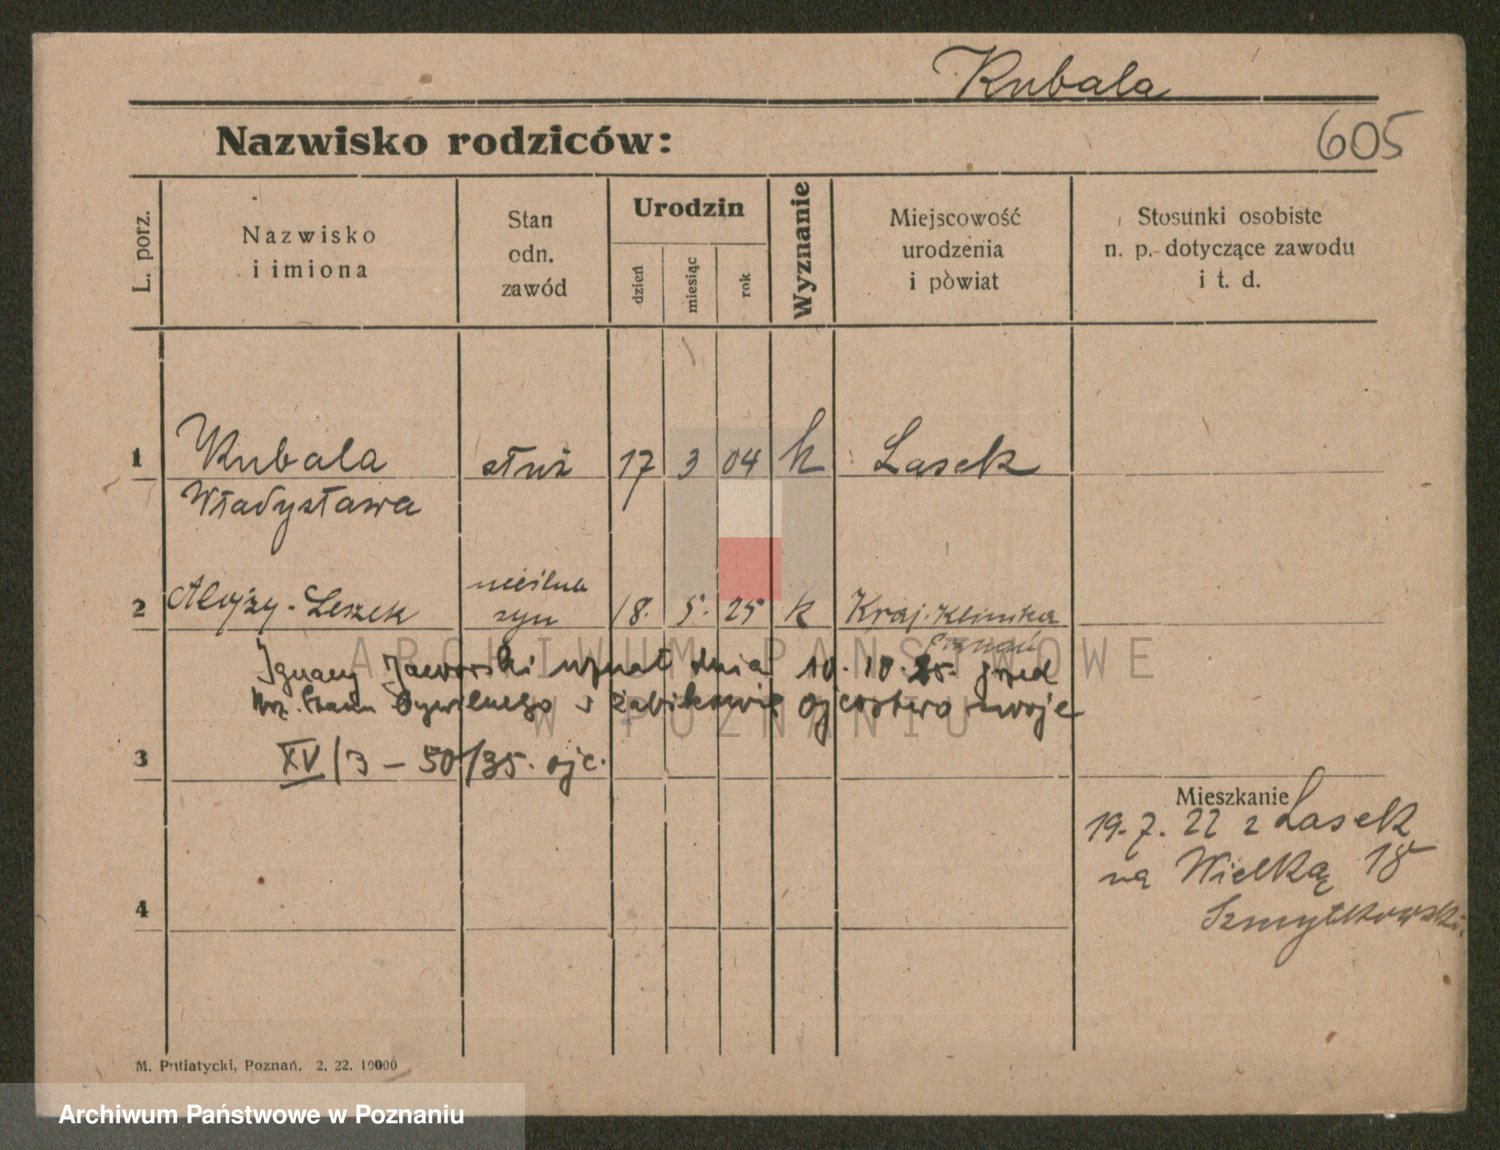 Kubala
Nazwisko rodziców:
605
L. porz.
Nazwisko
i imiona
Stan
odn.
zawód
Urodzin
dzień
miesiąc
rok
Wyznanie
Miejscowość
urodzenia
i powiat
Stosunki osobiste
n. p. dotyczące zawodu
i t. d.
1 Kubala służ 17 3 04 k Lasek
Władysława
2 Alojzy-Leszek nieślub syn 18. 5. 25 k Kraj. Klinika
Poznań
Ignacy Jaworski uznał dnia 10.10.25. przed
Urz. Stanu Cywilnego w Żabikowie ojcostwo swoje
3 XV/3 – 50/35. ojc.
Mieszkanie
19.7.22 z Lasek
na Wielką 18
Szmytkowski.
4
M. Putiatycki, Poznań. 2. 22. 10000
ARCHIWUM PAŃSTWOWE
W POZNANIU
Archiwum Państwowe w Poznaniu